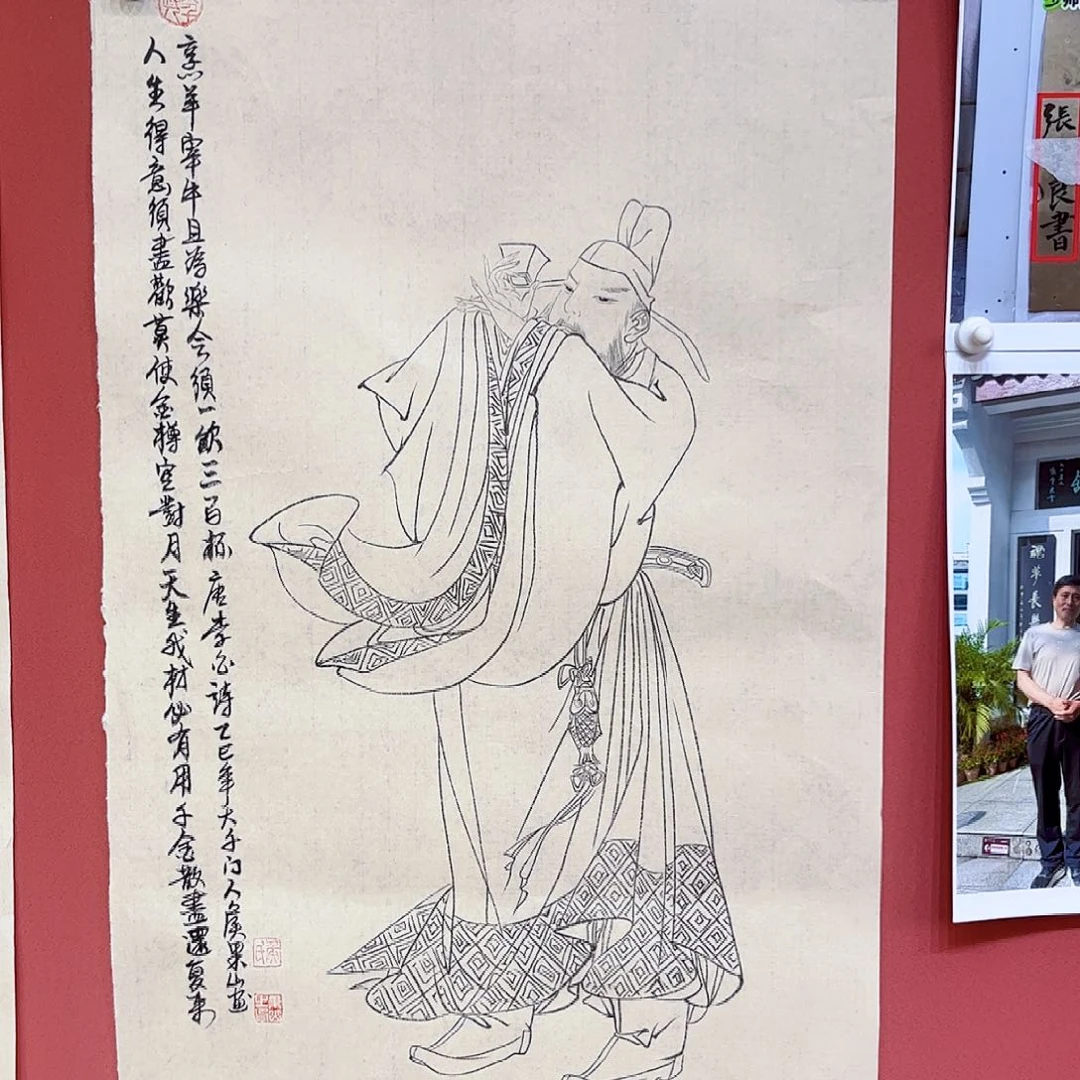 人生得意須盡歡莫使金樽空對月天生我材必有用千金散盡還复来
烹羊宰牛且為樂会須一飲三百杯唐李白詩乙巳年大千门人果山画
張良書